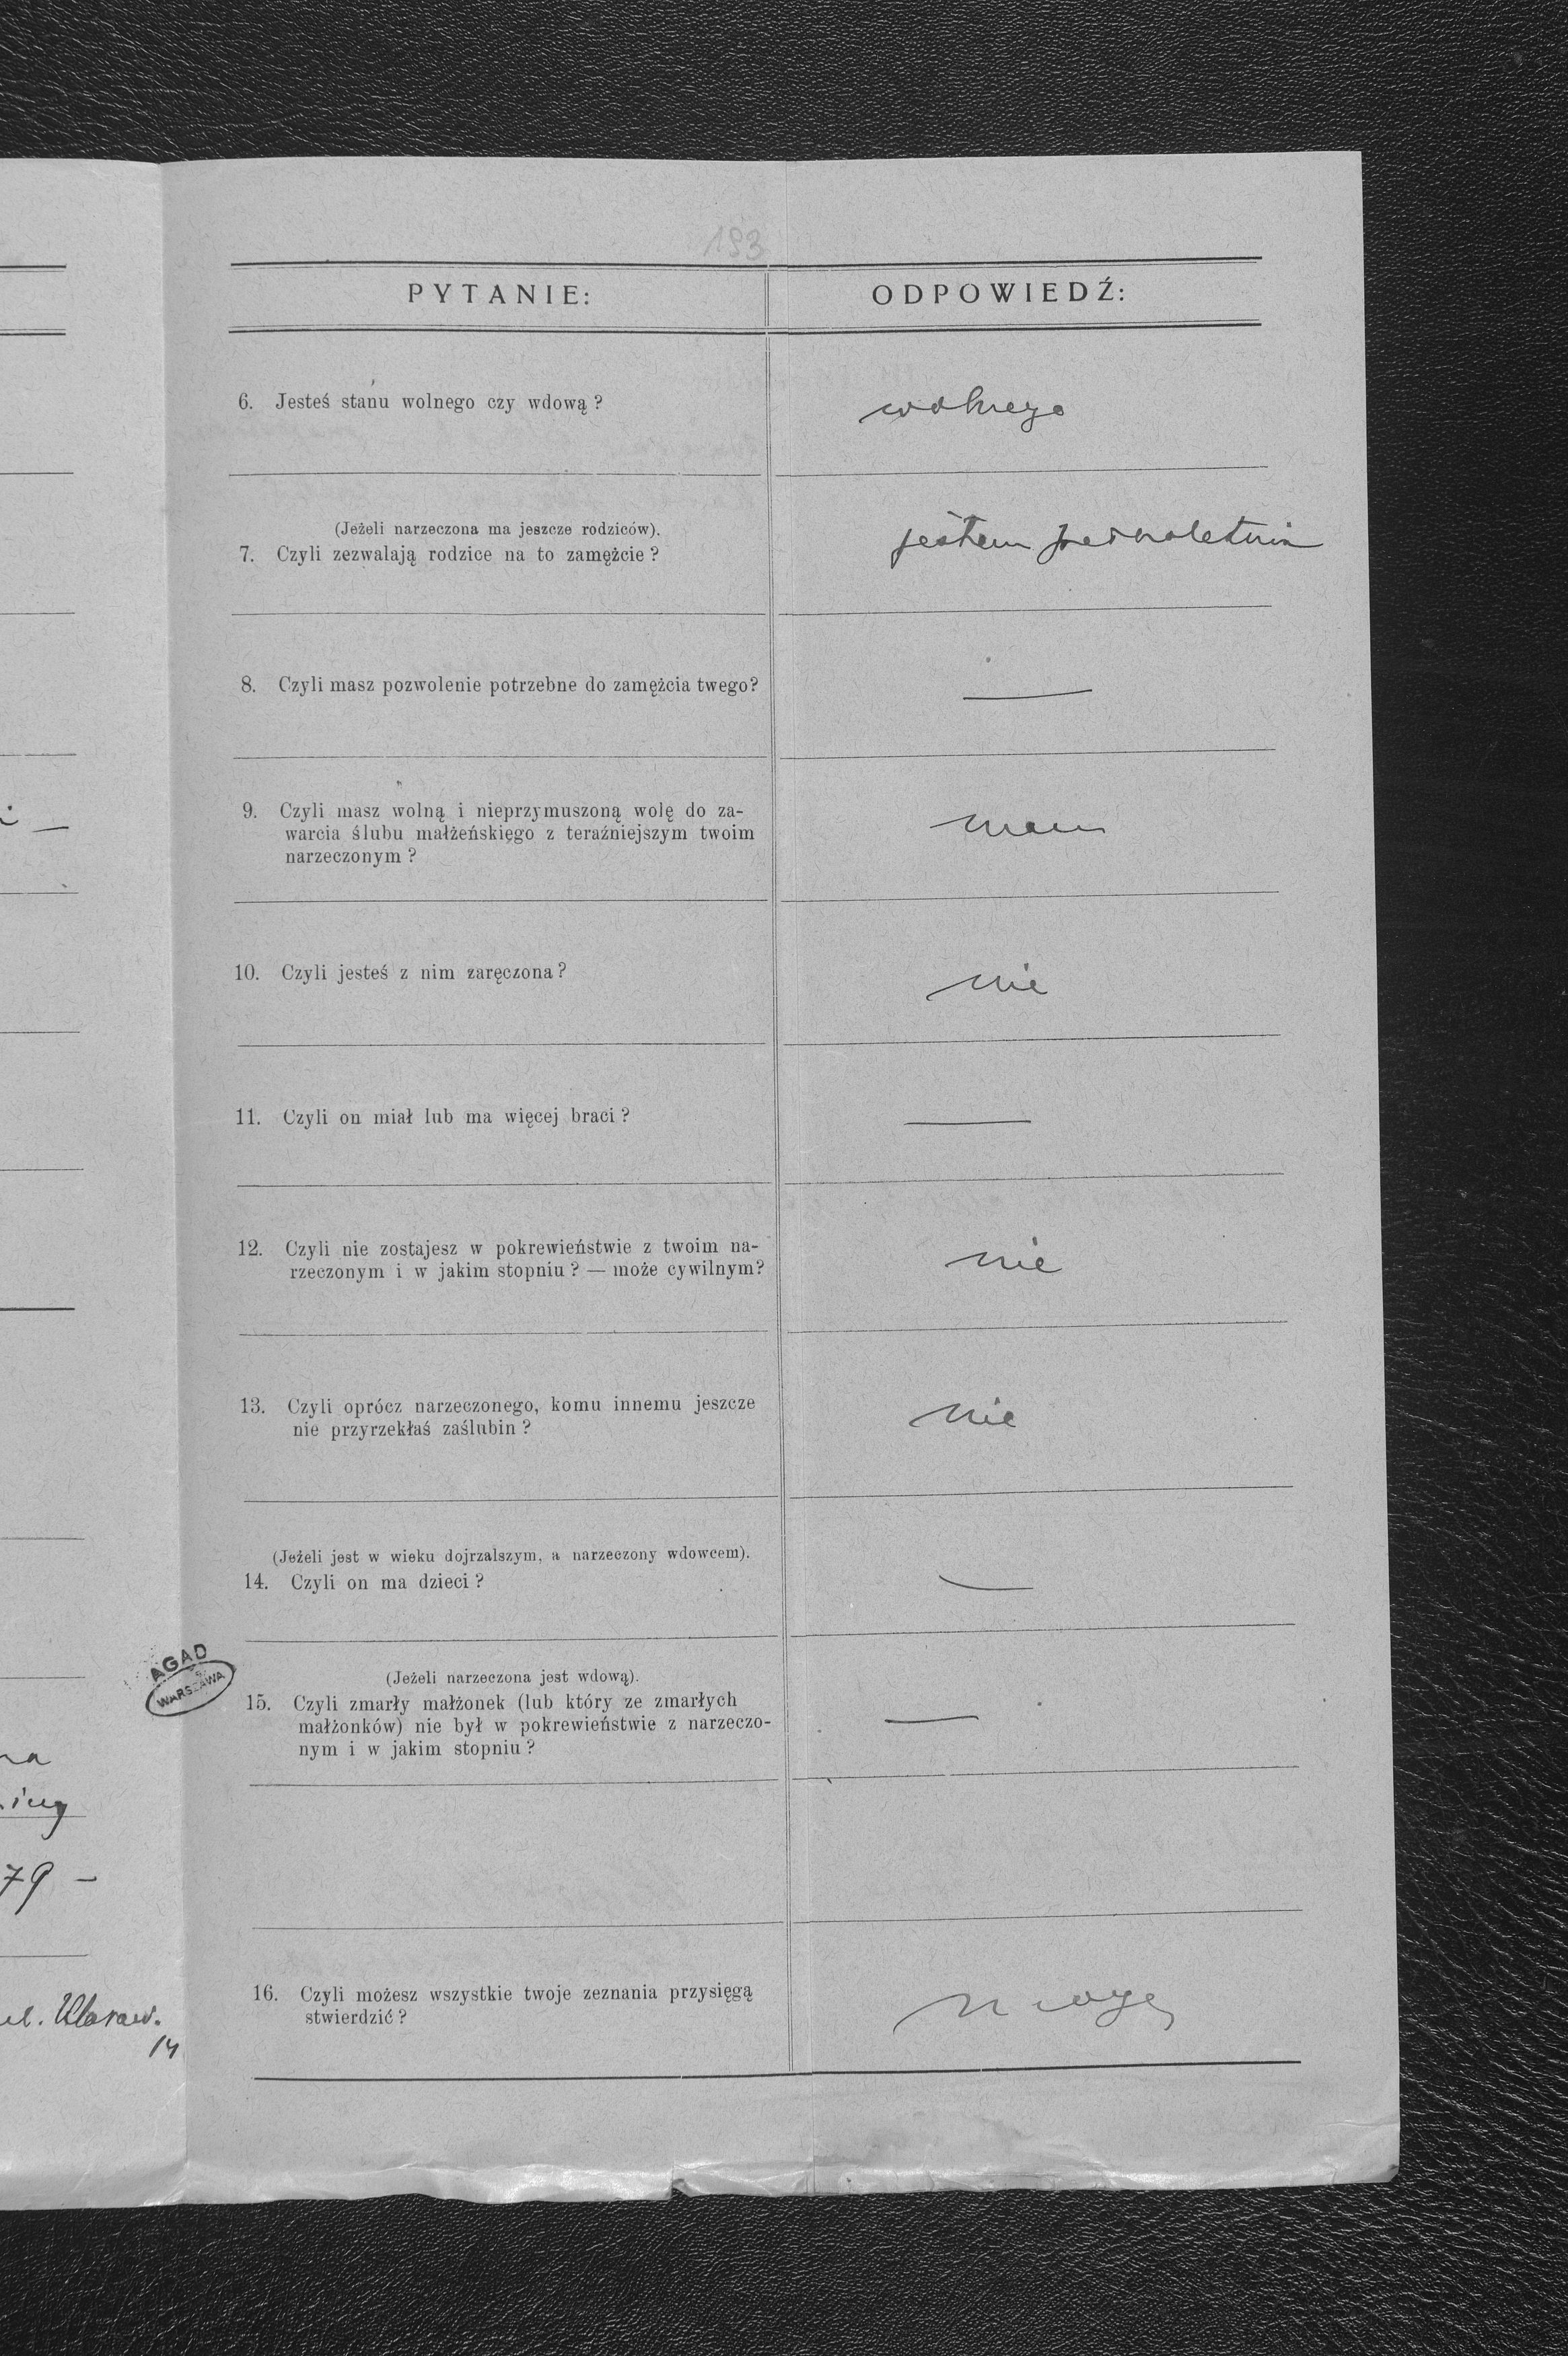 193
PYTANIE:
ODPOWIEDŹ:
6. Jesteś stanu wolnego czy wdową?
wolnego
(Jeżeli narzeczona ma jeszcze rodziców).
7. Czyli zezwalają rodzice na to zamężcie?
jestem pełnoletnia
8. Czyli masz pozwolenie potrzebne do zamężcia twego?
—
9. Czyli masz wolną i nieprzymuszoną wolę do za-
warcia ślubu małżeńskięgo z teraźniejszym twoim
narzeczonym?
mam
10. Czyli jesteś z nim zaręczona?
nie
11. Czyli on miał lub ma więcej braci?
—
12. Czyli nie zostajesz w pokrewieństwie z twoim na-
rzeczonym i w jakim stopniu? — może cywilnym?
nie
13. Czyli oprócz narzeczonego, komu innemu jeszcze
nie przyrzekłaś zaślubin?
nie
(Jeżeli jest w wieku dojrzalszym, a narzeczony wdowcem).
14. Czyli on ma dzieci?
—
(Jeżeli narzeczona jest wdową).
15. Czyli zmarły małżonek (lub który ze zmarłych
małżonków) nie był w pokrewieństwie z narzeczo-
nym i w jakim stopniu?
—
16. Czyli możesz wszystkie twoje zeznania przysięgą
stwierdzić?
mogę
AGAD
WARSZAWA
79 –
14